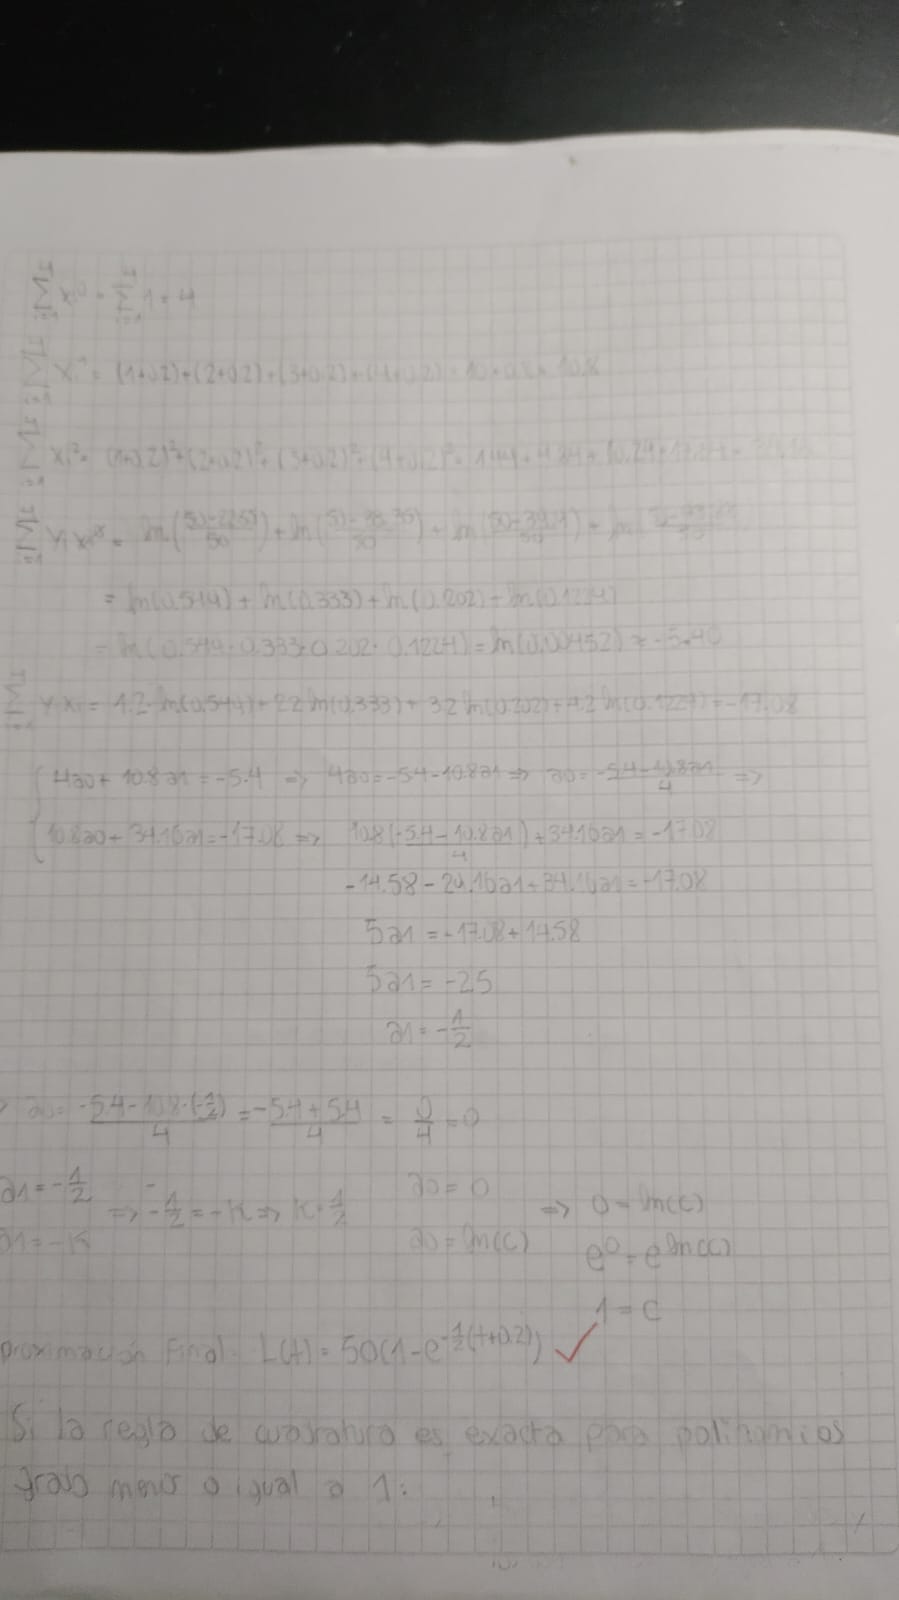 Σ xi⁰ = Σ 1 = 4
Σ xi¹ = (1+0.2)+(2+0.2)+(3+0.2)+(4+0.2) = 10+0.8 = 10.8
Σ xi² = (1+0.2)²+(2+0.2)²+(3+0.2)²+(4+0.2)² = 1.44 + 4.84 + 10.24 + 17.64 = 34.16
Σ yi xi⁰ = ln( /50) + ln( /50) + ln( /50) + ln(
= ln(0.544) + ln(0.333) + ln(0.202) + ln(0.1224)
= ln(0.544 · 0.333 · 0.202 · 0.1224) = ln(0.00452) ≈ -5.40
Σ yi xi = 1.2 · ln(0.544) + 2.2 ln(0.333) + 3.2 ln(0.202) + 4.2 ln(0.1224) = -17.08
4a0 + 10.8a1 = -5.4 => 4a0 = -5.4 - 10.8a1 => a0 = (-5.4 - 10.8a1)/4 =>
10.8a0 + 34.16a1 = -17.08 => 10.8((-5.4 - 10.8a1)/4) + 34.16a1 = -17.08
-14.58 - 29.16a1 + 34.16a1 = -17.08
5a1 = -17.08 + 14.58
5a1 = -2.5
a1 = -1/2
a0 = (-5.4 - 10.8 · (-1/2))/4 = (-5.4 + 5.4)/4 = 0/4 = 0
a1 = -1/2 => -1/2 = -K => K = 1/2 a0 = 0 => 0 = ln(c)
a1 = -K a0 = ln(c) e⁰ = e^ln(c)
1 = c
proximación Final: L(t) = 50(1 - e^(-1/2(t+0.2))) ✓
Si la regla de cuadratura es exacta para polinomios
grado menor o igual a 1: